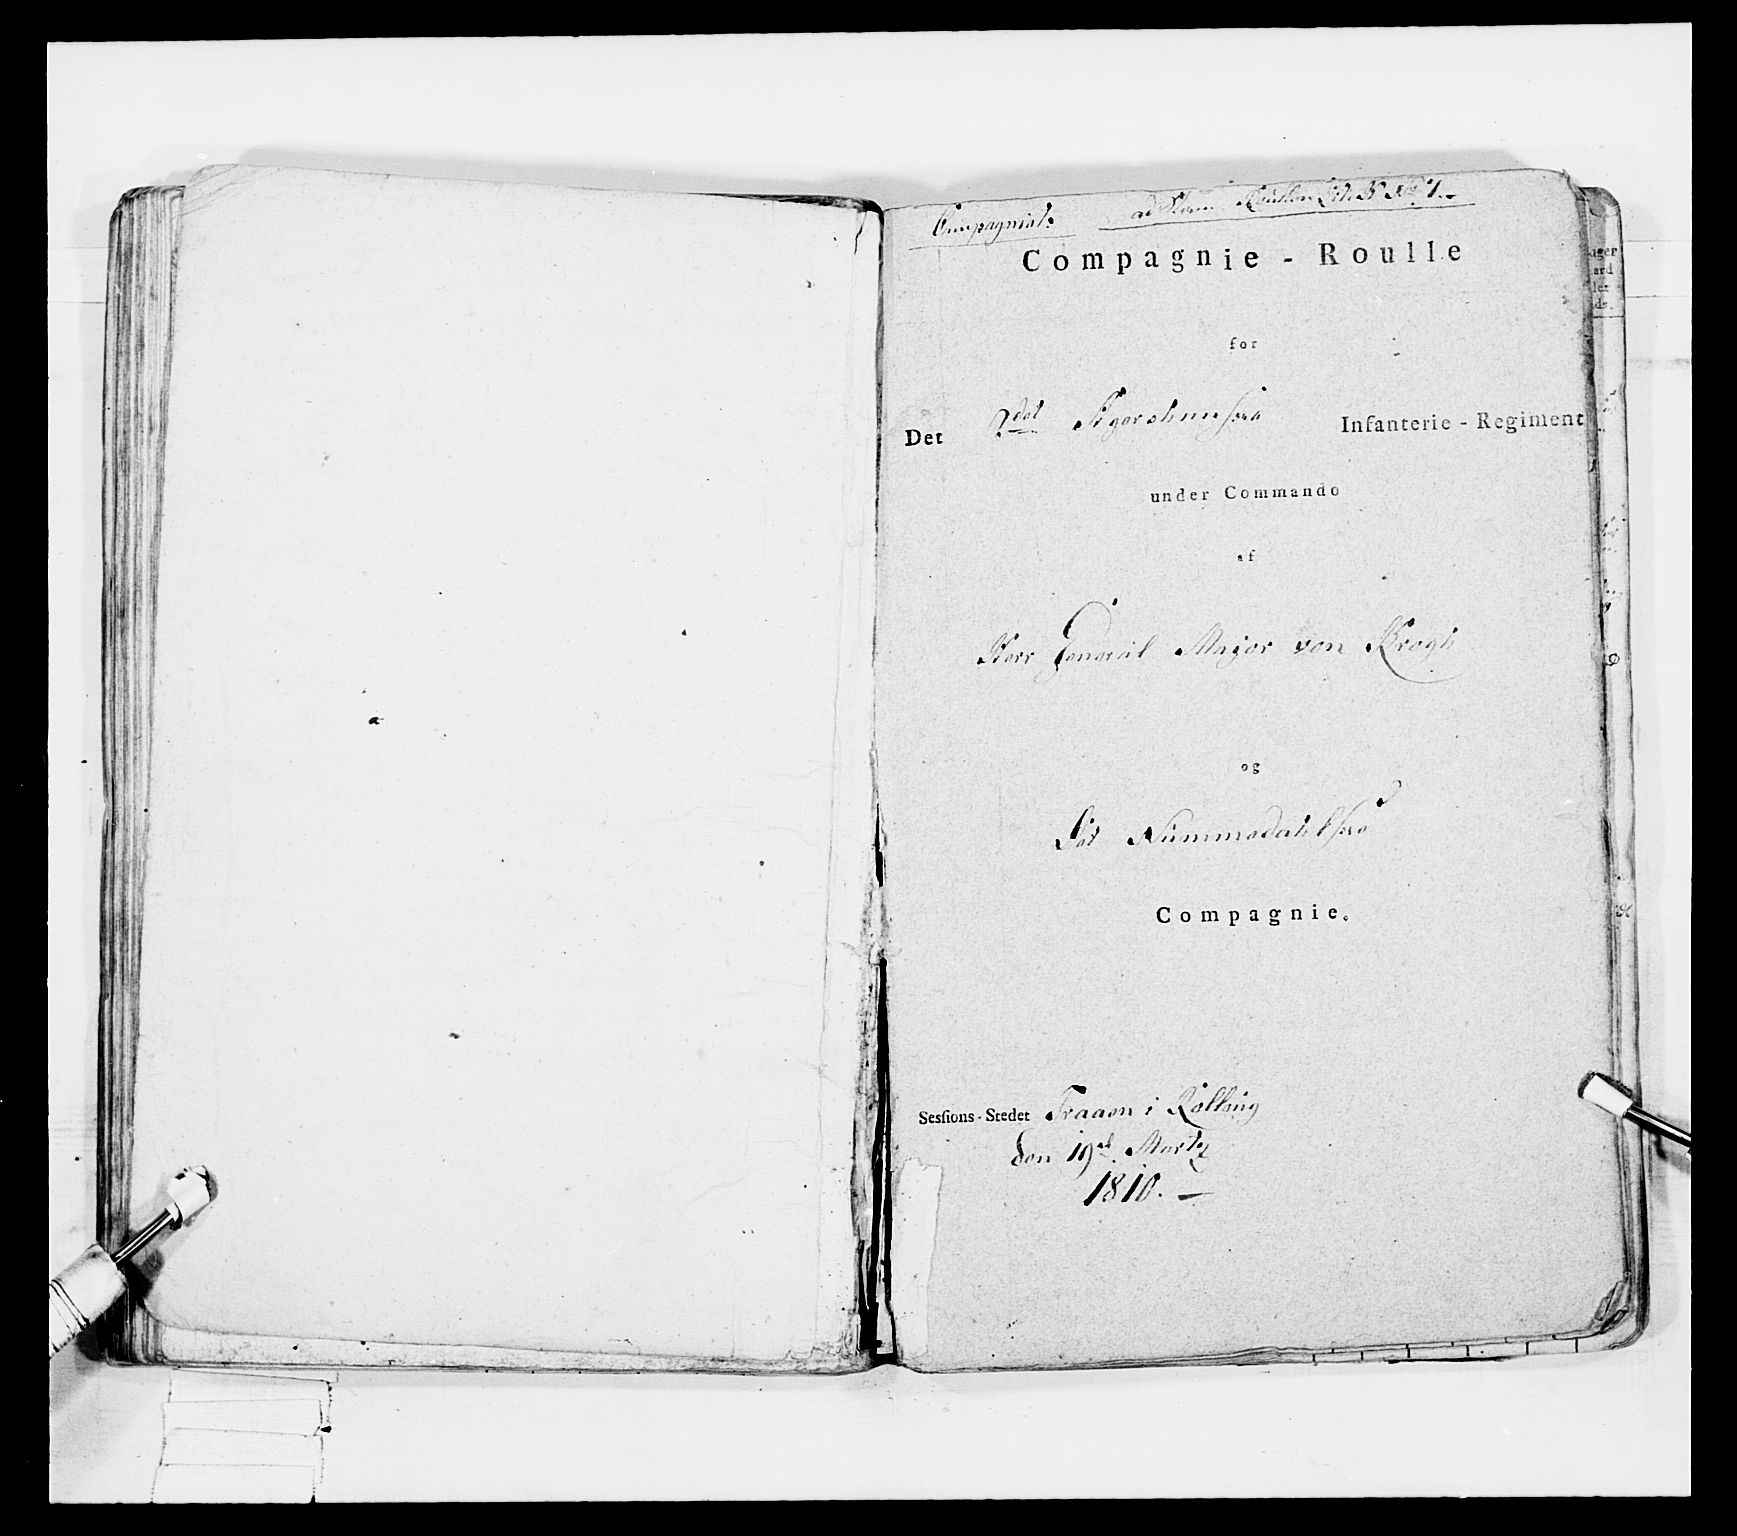 Compagniets ad Stam Rullen Litr. N No 1.
Compagnie - Roulle
for
Det 2det Infanterie - Regiment
under Commando
af
Herr General Major von Krogh
og
Det Nummedahlske
Compagnie.
Sessions-Stedet Fraaen i Rollaug
den 19de Martz
1810. —